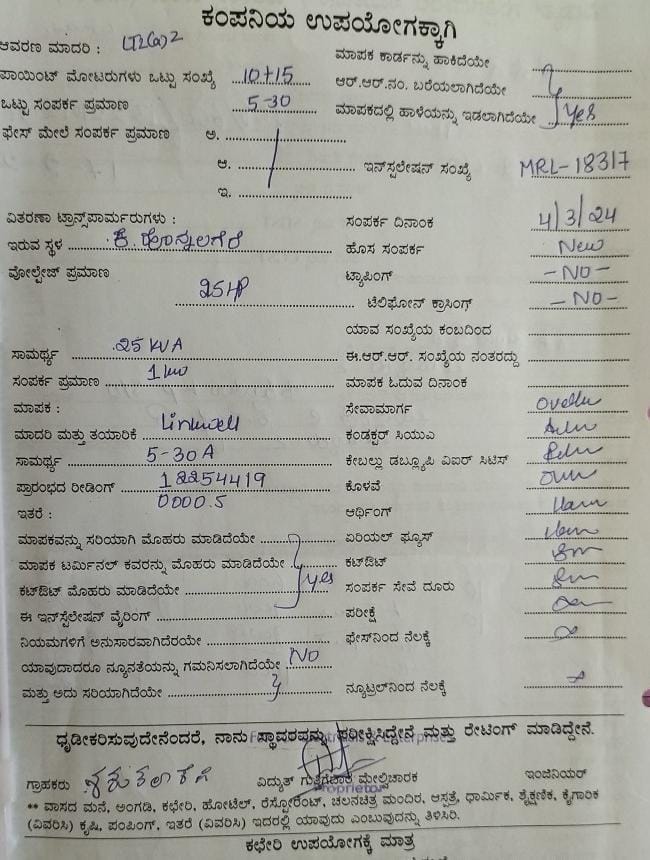 ಕಂಪನಿಯ ಉಪಯೋಗಕ್ಕಾಗಿ
ಆವರಣ ಮಾದರಿ : LT2(a)2
ಮಾಪಕ ಕಾರ್ಡನ್ನು ಹಾಕಿದೆಯೇ
ಪಾಯಿಂಟ್ ಮೋಟರುಗಳು ಒಟ್ಟು ಸಂಖ್ಯೆ 10+15
ಆರ್.ಆರ್.ನಂ. ಬರೆಯಲಾಗಿದೆಯೇ
ಒಟ್ಟು ಸಂಪರ್ಕ ಪ್ರಮಾಣ 5-30
ಮಾಪಕದಲ್ಲಿ ಹಾಳೆಯನ್ನು ಇಡಲಾಗಿದೆಯೇ Yes
ಫೇಸ್ ಮೇಲೆ ಸಂಪರ್ಕ ಪ್ರಮಾಣ ಅ.
ಆ.
ಇನ್‌ಸ್ಟಲೇಷನ್ ಸಂಖ್ಯೆ MRL-18317
ಇ.
ವಿತರಣಾ ಟ್ರಾನ್ಸ್‌ಪಾರ್ಮರುಗಳು :
ಸಂಪರ್ಕ ದಿನಾಂಕ 4/3/24
ಇರುವ ಸ್ಥಳ ಕೆ. ಹೊನ್ನಲಗೆರೆ
ಹೊಸ ಸಂಪರ್ಕ New
ವೋಲ್ಟೇಜ್ ಪ್ರಮಾಣ
ಟ್ಯಾಪಿಂಗ್ -NO-
25HP
ಟೆಲಿಫೋನ್ ಕ್ರಾಸಿಂಗ್ -NO-
ಯಾವ ಸಂಖ್ಯೆಯ ಕಂಬದಿಂದ
ಸಾಮರ್ಥ್ಯ 25 KVA
ಈ.ಆರ್.ಆರ್. ಸಂಖ್ಯೆಯ ನಂತರದ್ದು
ಸಂಪರ್ಕ ಪ್ರಮಾಣ 1 kw
ಮಾಪಕ ಓದುವ ದಿನಾಂಕ
ಮಾಪಕ :
ಸೇವಾಮಾರ್ಗ
ಮಾದರಿ ಮತ್ತು ತಯಾರಿಕೆ Linkwell
ಕಂಡಕ್ಟರ್ ಸಿಯುಎ
ಸಾಮರ್ಥ್ಯ 5-30 A
ಕೇಬಲ್ಲು ಡಬ್ಲ್ಯೂಪಿ ವಿಐರ್ ಸಿಟಿಸ್
ಪ್ರಾರಂಭದ ರೀಡಿಂಗ್ 12254419
ಕೊಳವೆ
0000.5
ಇತರೆ :
ಆರ್ಥಿಂಗ್
ಮಾಪಕವನ್ನು ಸರಿಯಾಗಿ ಮೊಹರು ಮಾಡಿದೆಯೇ
ಏರಿಯಲ್ ಫ್ಯೂಸ್
ಮಾಪಕ ಟರ್ಮಿನಲ್ ಕವರನ್ನು ಮೊಹರು ಮಾಡಿದೆಯೇ
ಕಟ್‌ಔಟ್
ಕಟ್‌ಔಟ್ ಮೊಹರು ಮಾಡಿದೆಯೇ Yes
ಸಂಪರ್ಕ ಸೇವೆ ದೂರು
ಈ ಇನ್‌ಸ್ಟಲೇಷನ್ ವೈರಿಂಗ್
ಪರೀಕ್ಷೆ
ನಿಯಮಗಳಿಗೆ ಅನುಸಾರವಾಗಿದೆರಯೇ
ಫೇಸ್‌ನಿಂದ ನೆಲಕ್ಕೆ
ಯಾವುದಾದರೂ ನ್ಯೂನತೆಯನ್ನು ಗಮನಿಸಲಾಗಿದೆಯೇ NO
ಮತ್ತು ಅದು ಸರಿಯಾಗಿದೆಯೇ
ನ್ಯೂಟ್ರಲ್‌ನಿಂದ ನೆಲಕ್ಕೆ
ಧೃಡೀಕರಿಸುವುದೇನೆಂದರೆ, ನಾನು ಸ್ಥಾವರವನ್ನು ಪರೀಕ್ಷಿಸಿದ್ದೇನೆ ಮತ್ತು ರೇಟಿಂಗ್ ಮಾಡಿದ್ದೇನೆ.
ಗ್ರಾಹಕರು
ವಿದ್ಯುತ್ ಗುತ್ತಿಗೆದಾರ ಮೇಲ್ವಿಚಾರಕ
ಇಂಜಿನಿಯರ್
Proprietor
** ವಾಸದ ಮನೆ, ಅಂಗಡಿ, ಕಛೇರಿ, ಹೋಟೆಲ್, ರೆಸ್ಟೋರೆಂಟ್, ಚಲನಚಿತ್ರ ಮಂದಿರ, ಆಸ್ಪತ್ರೆ, ಧಾರ್ಮಿಕ, ಶೈಕ್ಷಣಿಕ, ಕೈಗಾರಿಕ
(ವಿವರಿಸಿ) ಕೃಷಿ, ಪಂಪಿಂಗ್, ಇತರೆ (ವಿವರಿಸಿ) ಇದರಲ್ಲಿ ಯಾವುದು ಎಂಬುವುದನ್ನು ತಿಳಿಸಿರಿ.
ಕಛೇರಿ ಉಪಯೋಗಕ್ಕೆ ಮಾತ್ರ